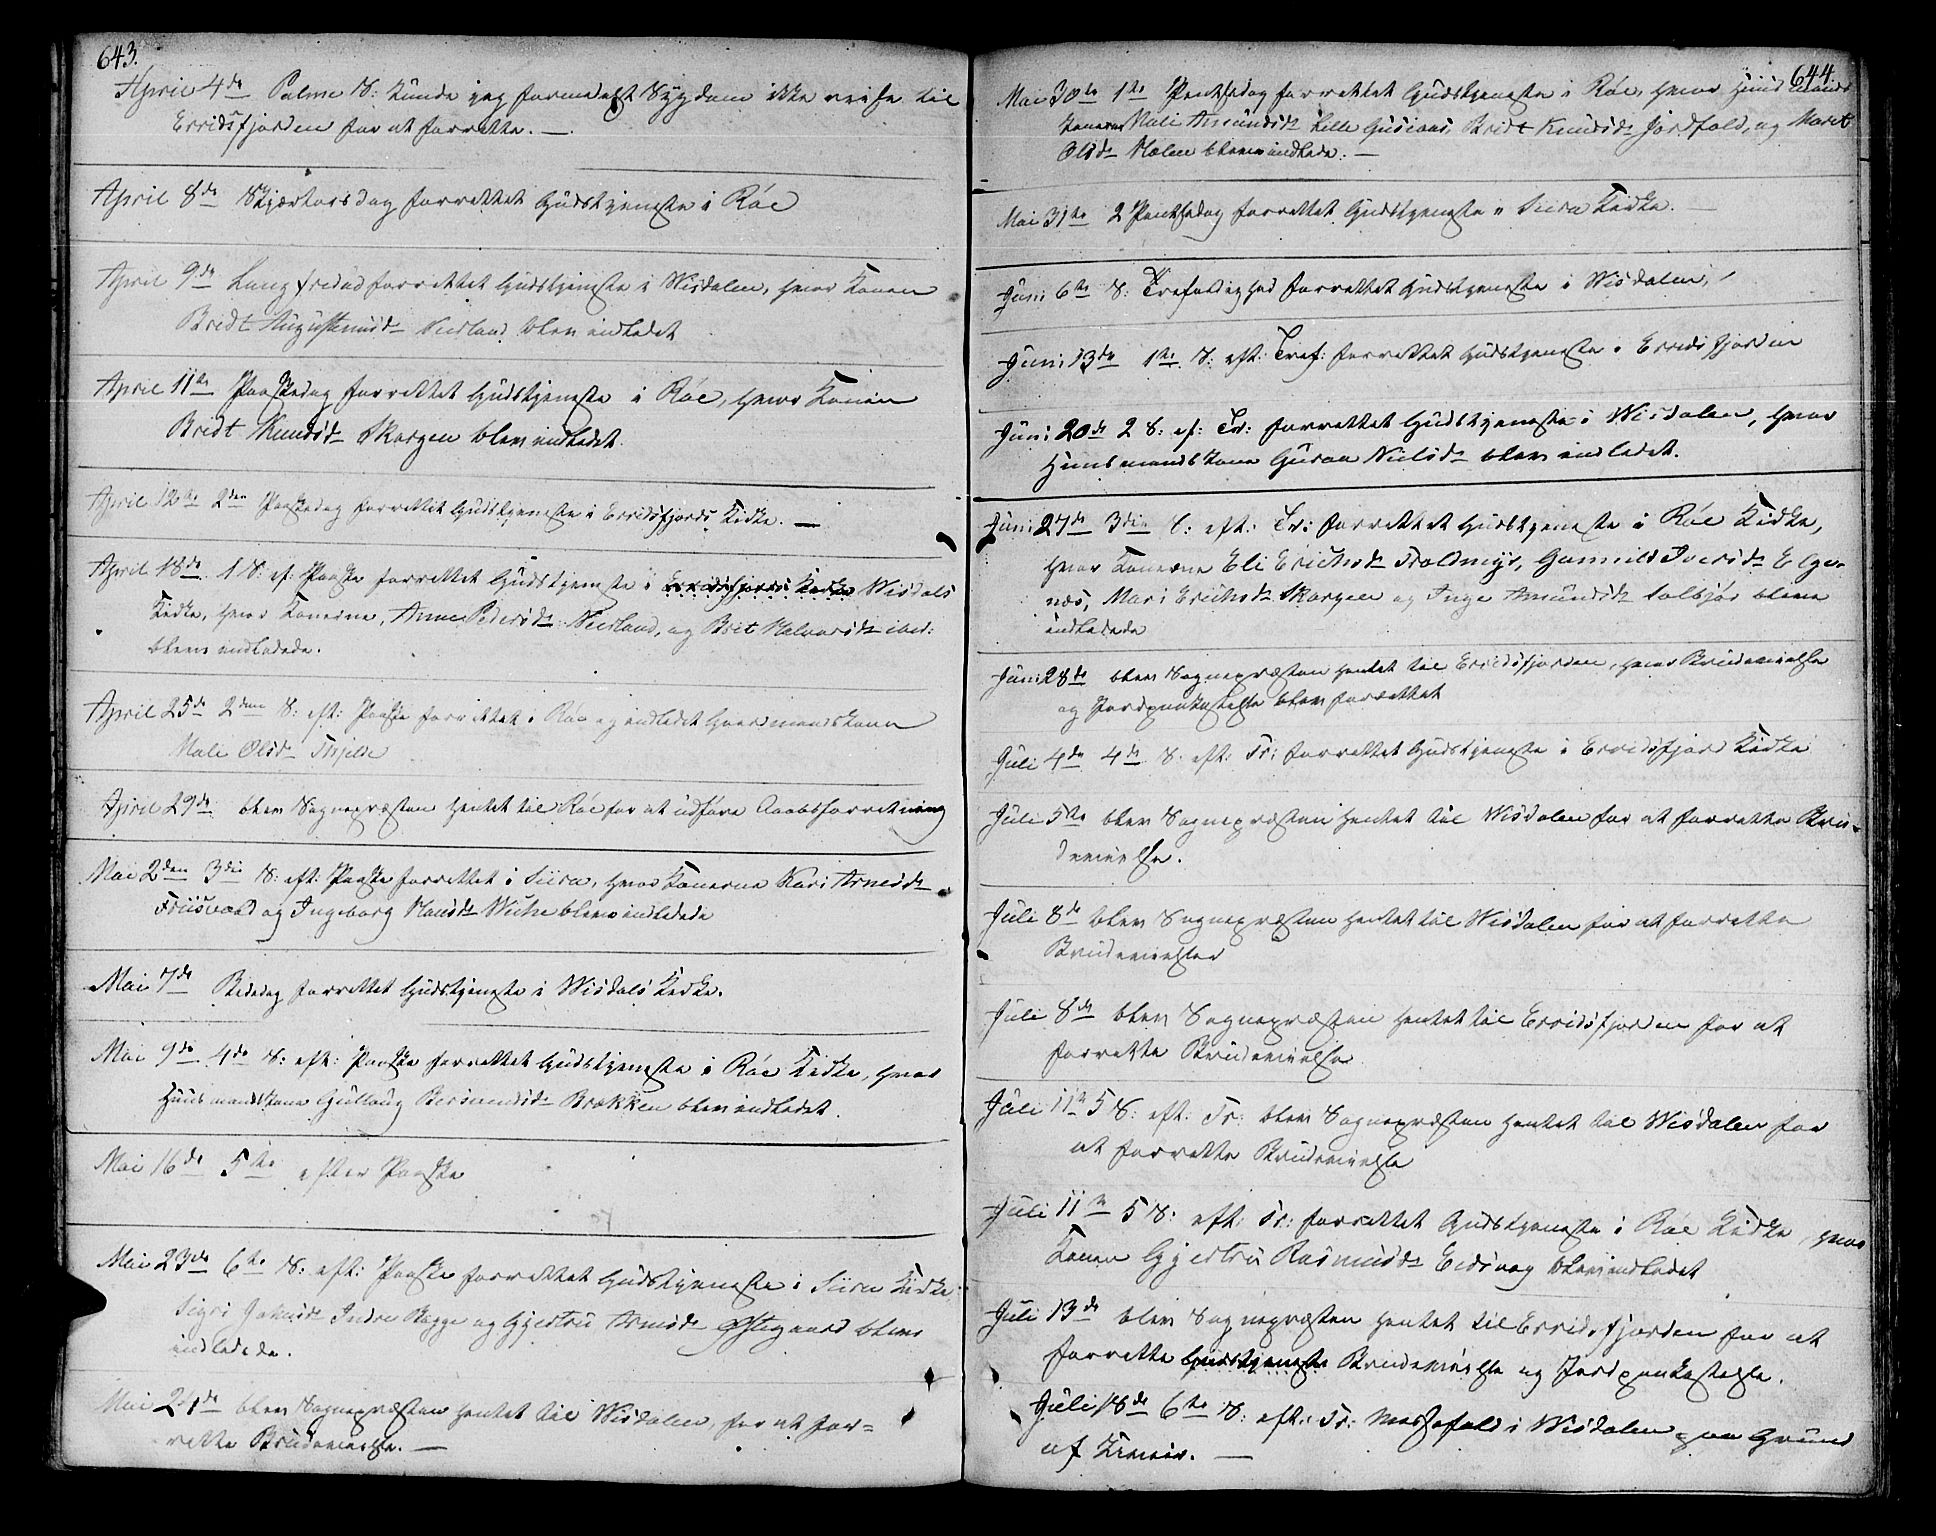 643.
April 4de Palme S: kunde jeg formedelst Sygdom ikke reise til
Erridsfjorden for at forrette. —
April 8de Skjærtorsdag forrettet Gudstjeneste i Røe
April 9de Langfredad forrettet Gudstjeneste i Wisdalen, hvor Konen
Bridt Augustinusd: Neerland blev indledet
April 11te Paaskedag forrettet Gudstjeneste i Røe, hvor Konen
Bridt Knudsd: Skorgen blev indledet.
April 12te 2den Paaskedag forrettet Gudstjeneste i Erridsfjords Kirke. —
April 18de 1 S: ef: Paaske forrettet Gudstjeneste i Erridsfjords Kirke Wisdals
Kirke, hvor Konerne, Anne Pedersd: Neerland, og Brit Halvorsd: ibid:
blev indledede.
April 25de 2den S: eft: Paaske forrettet i Røe og indledet Huusmandskone
Mali Olsd:
April 29de blev Sognepræsten hentet til Røe for at udføre Daabsforretning
Mai 2den 3die S: eft: Paaske forrettet i Siira, hvor Konerne Kari Arnesd:
Friisvold og Ingeborg Hansd: Wiche blev indledede
Mai 7de Bededag forrettet Gudstjeneste i Wisdals Kirke.
Mai 9de 4de S: eft: Paaske forrettet Gudstjeneste i Røe Kirke, hvor
Huusmandskone Gullaug Bersvendsd: Brekken blev indledet.
Mai 16de 5te efter Paaske
Mai 23de 6te S: eft: Paaske forrettet Gudstjeneste i Siira Kirke.
Sigri Jakobsd: Indre Bogge og Gjertru Arnesd: Østegaard blev
indledede.
Mai 24de blev Sognepræsten hentet til Wisdalen, for at for=
rette Brudevielse. —
644.
Mai 30te 1te Pintsedag forrettet Gudstjeneste i Røe, hvor Huusmands
konerne Mali Amundsd: Lille Gusiaas, Bridt Knudsd: Jordfald, og Marit
Olsd: Hælen blev indlede. —
Mai 31te 2 Pintsedag forrettet Gudstjeneste i Siira Kirke. —
Juni 6te S: Trefoldighed forrettet Gudstjeneste i Wisdalen,
Juni 13de 1te S: eft: Tref: forrettet Gudstjeneste i Erridsfjorden
Juni 20de 2 S: ef: Tr: forrettet Gudstjeneste i Wisdalen, hvor
Huusmandskone Guroe Nielsd: blev indledet.
Juni 27de 3die S: eft: Tr: forrettet Gudstjeneste i Røe Kirke,
hvor Konerne Eli Erichsd: Troldmyr, Gunnild Iversd: Elge-
næs, Mari Erichsd: Skorgen og Inge Amundsd: Solbjør bleve
indledede
Juni 28de blev Sognepræsten hentet til Erridsfjorden, hvor Brudevielse
og Jordpaakastelse blev forrettet
Juli 4de 4de S: eft: Tr: forrettet Gudstjeneste i Erridsfjord Kirke
Juli 5te blev Sognepræsten hentet til Wisdalen for at forrette Bru-
devielse.
Juli 8de blev Sognepræsten hentet til Wisdalen for at forrette
Brudevielser
Juli 8de blev Sognepræsten hentet til Erridsfjorden for at
forrette Brudevielse
Juli 11te 5 S: eft: Tr: blev Sognepræsten hentet til Wisdalen for
at forrette Brudevielse
Juli 11te 5 S: eft: Tr: forrettet Gudstjeneste i Røe Kirke, hvor
Konen Gjertru Rasmusd: Eidsvog blev indledet
Juli 13de blev Sognepræsten hentet til Erridsfjorden for at
forrette Gudstjeneste Brudevielse og Jordpaakastelse.
Juli 18de 6te S: eft: Tr: Messefald i Wisdalen paa Grund
af